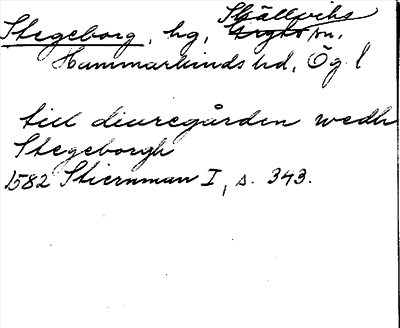 Stegeborg, hg, Skällviks sn,
Hammarkinds hd, Ög l
till diuregården wedh
Stegeborgh
1582 Stiernman I, s. 343.